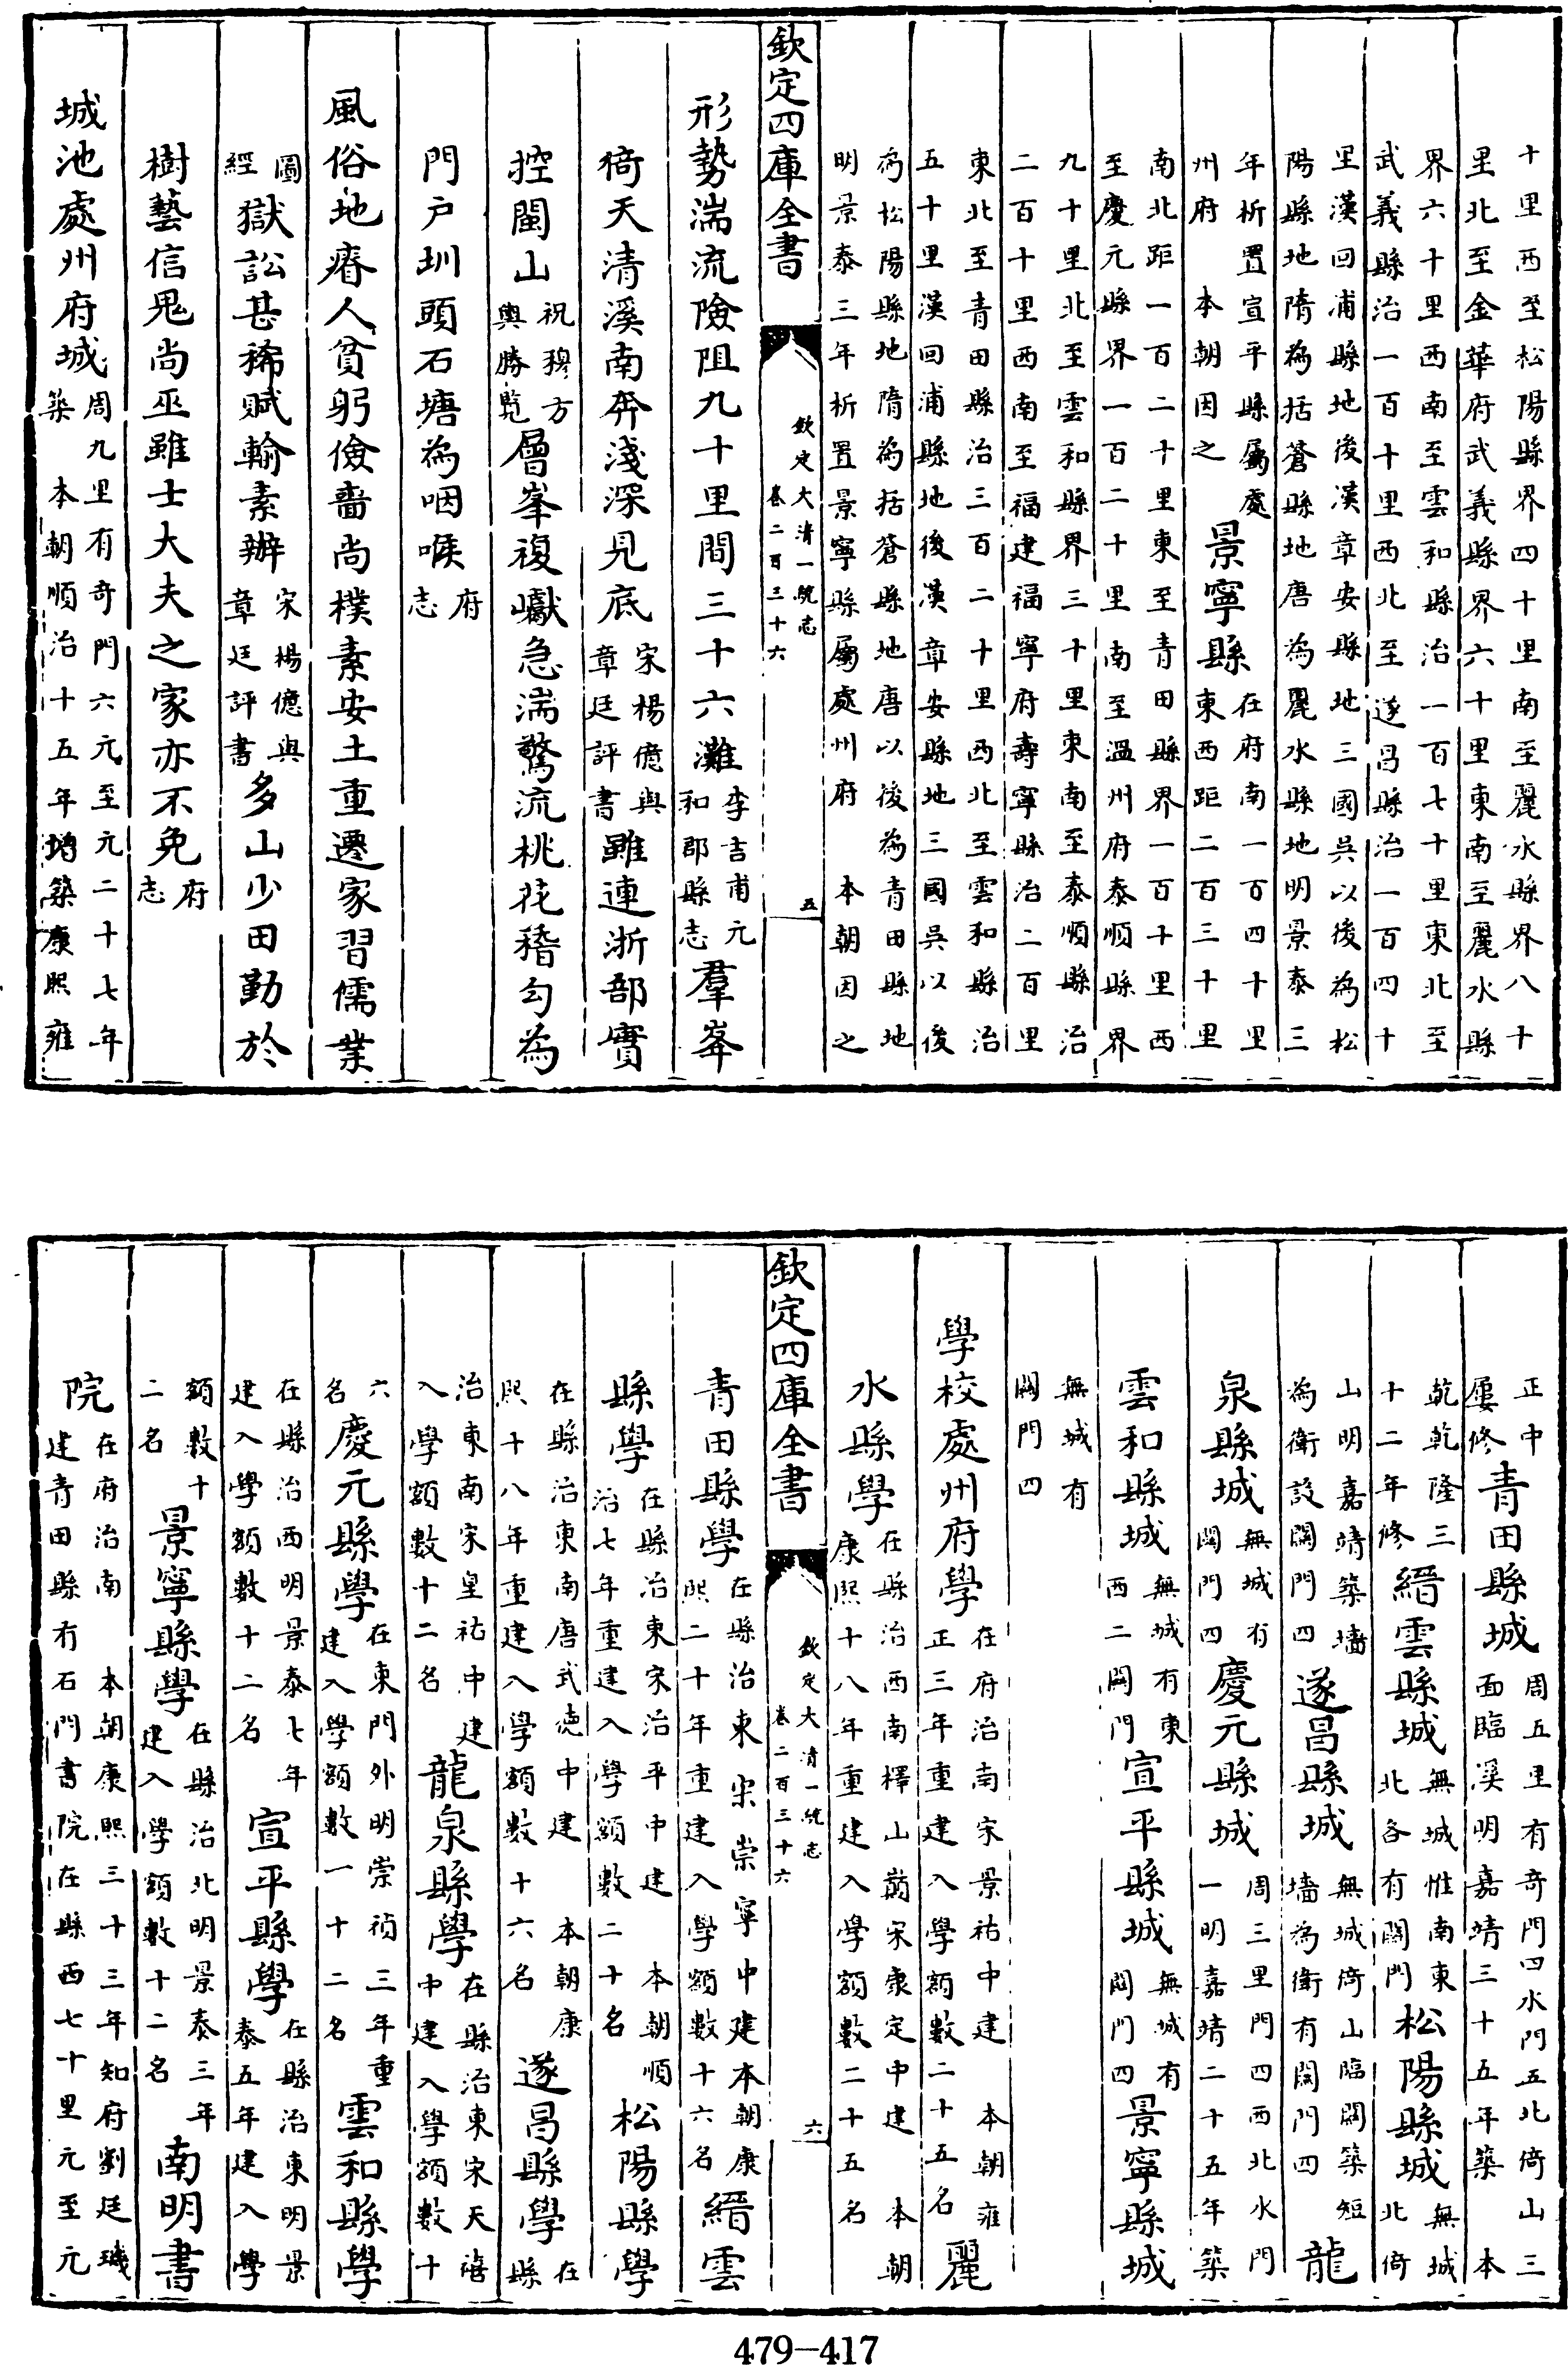 十里西至松陽縣界四十里南至麗水縣界八十
里北至金華府武義縣界六十里東南至麗水縣
界六十里西南至雲和縣治一百七十里東北至
武義縣治一百十里西北至遂昌縣治一百四十
里漢回浦縣地後漢章安縣地三國吳以後為松
陽縣地隋為括蒼縣地唐為麗水縣地明景泰三
年析置宣平縣屬處州府 本朝因之 景寧縣 在府南一百四十里東西距二百三十里
南北距一百二十里東至青田縣界一百十里西
至慶元縣界一百二十里南至溫州府泰順縣界
九十里北至雲和縣界三十里東南至泰順縣治
二百十里西南至福建福寧府壽寧縣治二百里
東北至青田縣治三百二十里西北至雲和縣治
五十里漢回浦縣地後漢章安縣地三國吳以後
為松陽縣地隋為括蒼縣地唐以後為青田縣地
明景泰三年析置景寧縣屬處州府 本朝因之
欽定四庫全書
欽定大清一統志
卷二百三十六
五
形勢湍流險阻九十里間三十六灘 李吉甫元和郡縣志 羣峯
倚天清溪南奔淺深見底 宋楊億與章廷評書 雖連浙部實
控閩山 祝穆方輿勝覽 層峯複巘急湍驚流桃花稽勾為
門戶圳頭石塘為咽喉 府志
風俗地瘠人貧躬儉嗇尚樸素安土重遷家習儒業
圖經 獄訟甚稀賦輸素辦 宋楊億與章廷評書 多山少田勤於
樹藝信鬼尚巫雖士大夫之家亦不免 府志
城池處州府城 周九里有奇門六元至元二十七年築 本朝順治十五年增築康熙雍
正中屢修 青田縣城 周五里有奇門四水門五北倚山三面臨溪明嘉靖三十五年築 本
乾乾隆三十二年修 縉雲縣城 無城惟南東北各有關門 松陽縣城 無城北倚
山明嘉靖築墻為衛設關門四 遂昌縣城 無城倚山臨關築短墻為衛有關門四 龍
泉縣城 無城有關門四 慶元縣城 周三里門四西北水門一明嘉靖二十五年築
雲和縣城 無城有東西二關門 宣平縣城 無城有關門四 景寧縣城
無城有關門四
學校處州府學 在府治南宋景祐中建 本朝雍正三年重建入學額數二十五名 麗
水縣學 在縣治西南樿山崩宋康定中建 本朝康熙十八年重建入學額數二十五名
欽定四庫全書
欽定大清一統志
卷二百三十六
六
青田縣學 在縣治東宋崇寧中建本朝康熙二十年重建入學額數十六名 縉雲
縣學 在縣治東宋治平中建 本朝順治七年重建入學額數二十名 松陽縣學
在縣治東南唐武德中建 本朝康熙十八年重建入學額數十六名 遂昌縣學 在縣
治東南宋皇祐中建入學額數十二名 龍泉縣學 在縣治東宋天禧中建入學額數十
六名 慶元縣學 在東門外明崇禎三年重建入學額數一十二名 雲和縣學
在縣治西明景泰七年建入學額數十二名 宣平縣學 在縣治東明景泰五年建入學
額數十二名 景寧縣學 在縣治北明景泰三年建入學額數十二名 南明書
院 在府治南 本朝康熙三十三年知府劉廷璣建青田縣有石門書院在縣西七十里元至元
479-417